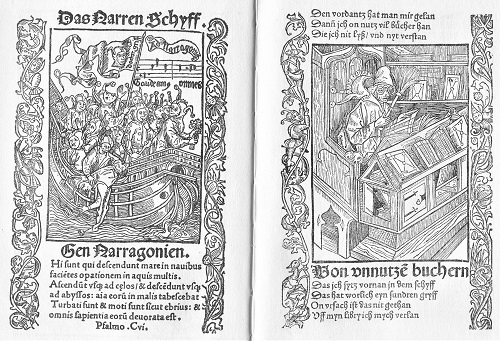 Das Narren Schyff.
Gaudeamus omnes
Gen Narragonien.
Hi sunt qui descendunt mare in nauibus
faciētes opationem in aquis multis.
Ascendūt vsq ad cęlos/ & descēdunt vsq
ad abyssos: aia eorū in malis tabescebat
Turbati sunt & moti sunt sicut ebrius: &
omnis sapientia eorū deuorata est.
Psalmo .Cvi.
Den vordantz hat man mir gelan
Dann̄ jch on nutz vil bůcher han
Die jch nit lyß/ vnd nyt verstan
Von vnnutzē buchern
Das jch sytz vornan in dem schyff
Das hat worlich eyn sundren gryff
On vrsach ist das nit gethan
Vff myn libry ich mych verlan